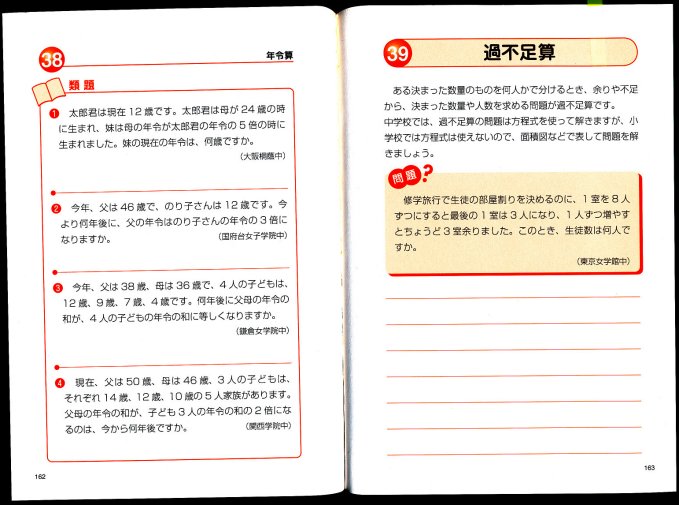 38
年令算
類題
1 太郎君は現在12歳です。太郎君は母が24歳の時
に生まれ、妹は母の年令が太郎君の年令の5倍の時に
生まれました。妹の現在の年令は、何歳ですか。
（大阪桐蔭中）
2 今年、父は46歳で、のり子さんは12歳です。今
より何年後に、父の年令はのり子さんの年令の3倍に
なりますか。
（国府台女子学院中）
3 今年、父は38歳、母は36歳で、4人の子どもは、
12歳、9歳、7歳、4歳です。何年後に父母の年令の
和が、4人の子どもの年令の和に等しくなりますか。
（鎌倉女学院中）
4 現在、父は50歳、母は46歳、3人の子どもは、
それぞれ14歳、12歳、10歳の5人家族があります。
父母の年令の和が、子ども3人の年令の和の2倍にな
るのは、今から何年後ですか。
（関西学院中）
162
39
過不足算
ある決まった数量のものを何人かで分けるとき、余りや不足
から、決まった数量や人数を求める問題が過不足算です。
中学校では、過不足算の問題は方程式を使って解きますが、小
学校では方程式は使えないので、面積図などで表して問題を解
きましょう。
問題?
修学旅行で生徒の部屋割りを決めるのに、1室を8人
ずつにすると最後の1室は3人になり、1人ずつ増やす
とちょうど3室余りました。このとき、生徒数は何人で
すか。
（東京女学館中）
163